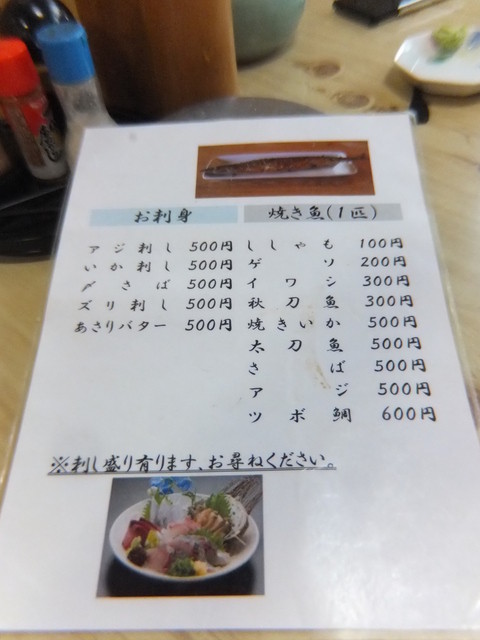 お刺身
アジ刺し 500円
いか刺し 500円
〆さば 500円
ズリ刺し 500円
あさりバター 500円
焼き魚(1匹)
ししゃも 100円
ゲソ 200円
イワシ 300円
秋刀魚 300円
焼きいか 500円
太刀魚 500円
さば 500円
アジ 500円
ツボ鯛 600円
※刺し盛り有ります、お尋ねください。